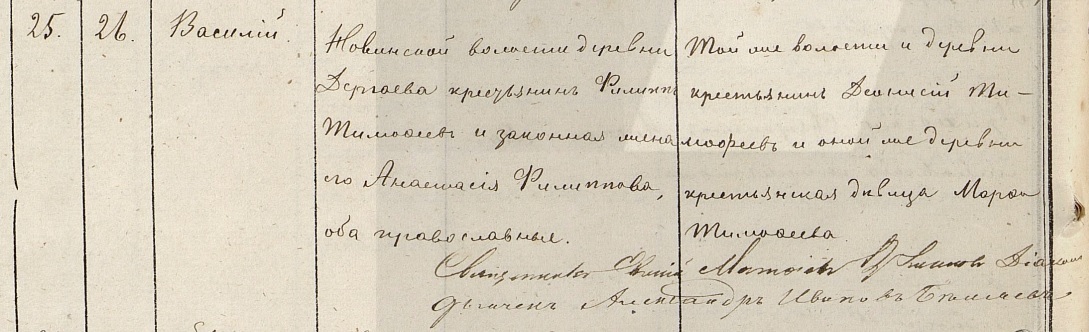 25. 26. Василій.
Новинской волости деревни
Дергаева крестьянинъ Филиппъ
Тимофеевъ и законная жена
его Анастасія Филиппова,
оба православные.
Той же волости и деревни
крестьянинъ Деонисій Ти-
мофеевъ и оной же деревни
крестьянская дѣвица Марѳа
Тимофеева.
Священникъ
Александръ Ивановъ